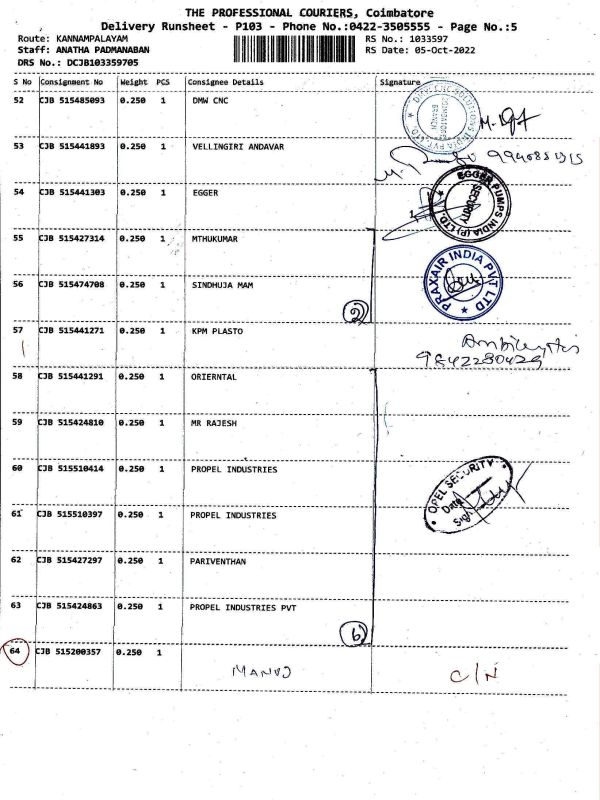 THE PROFESSIONAL COURIERS, Coimbatore
Delivery Runsheet - P103 - Phone No.:0422-3505555 - Page No.:5
Route: KANNAMPALAYAM RS No.: 1033597
Staff: ANATHA PADMANABAN RS Date: 05-Oct-2022
DRS No.: DCJB103359705
S No Consignment No Weight PCS Consignee Details Signature
52 CJB 515485093 0.250 1 DMW CNC
DMW CNC SOLUTIONS INDIA PVT. LTD. COIMBATORE BRANCH
53 CJB 515441893 0.250 1 VELLINGIRI ANDAVAR
54 CJB 515441303 0.250 1 EGGER
EGGER PUMPS INDIA (P) LTD. SECURITY
55 CJB 515427314 0.250 1 MTHUKUMAR
PRAXAIR INDIA PVT LTD
56 CJB 515474708 0.250 1 SINDHUJA MAM
2
57 CJB 515441271 0.250 1 KPM PLASTO
9842280429
58 CJB 515441291 0.250 1 ORIERNTAL
59 CJB 515424810 0.250 1 MR RAJESH
60 CJB 515510414 0.250 1 PROPEL INDUSTRIES
OPEL SECURITY
Date
Sign
61 CJB 515510397 0.250 1 PROPEL INDUSTRIES
62 CJB 515427297 0.250 1 PARIVENTHAN
63 CJB 515424863 0.250 1 PROPEL INDUSTRIES PVT
6
64 CJB 515200357 0.250 1
MANOJ C/N